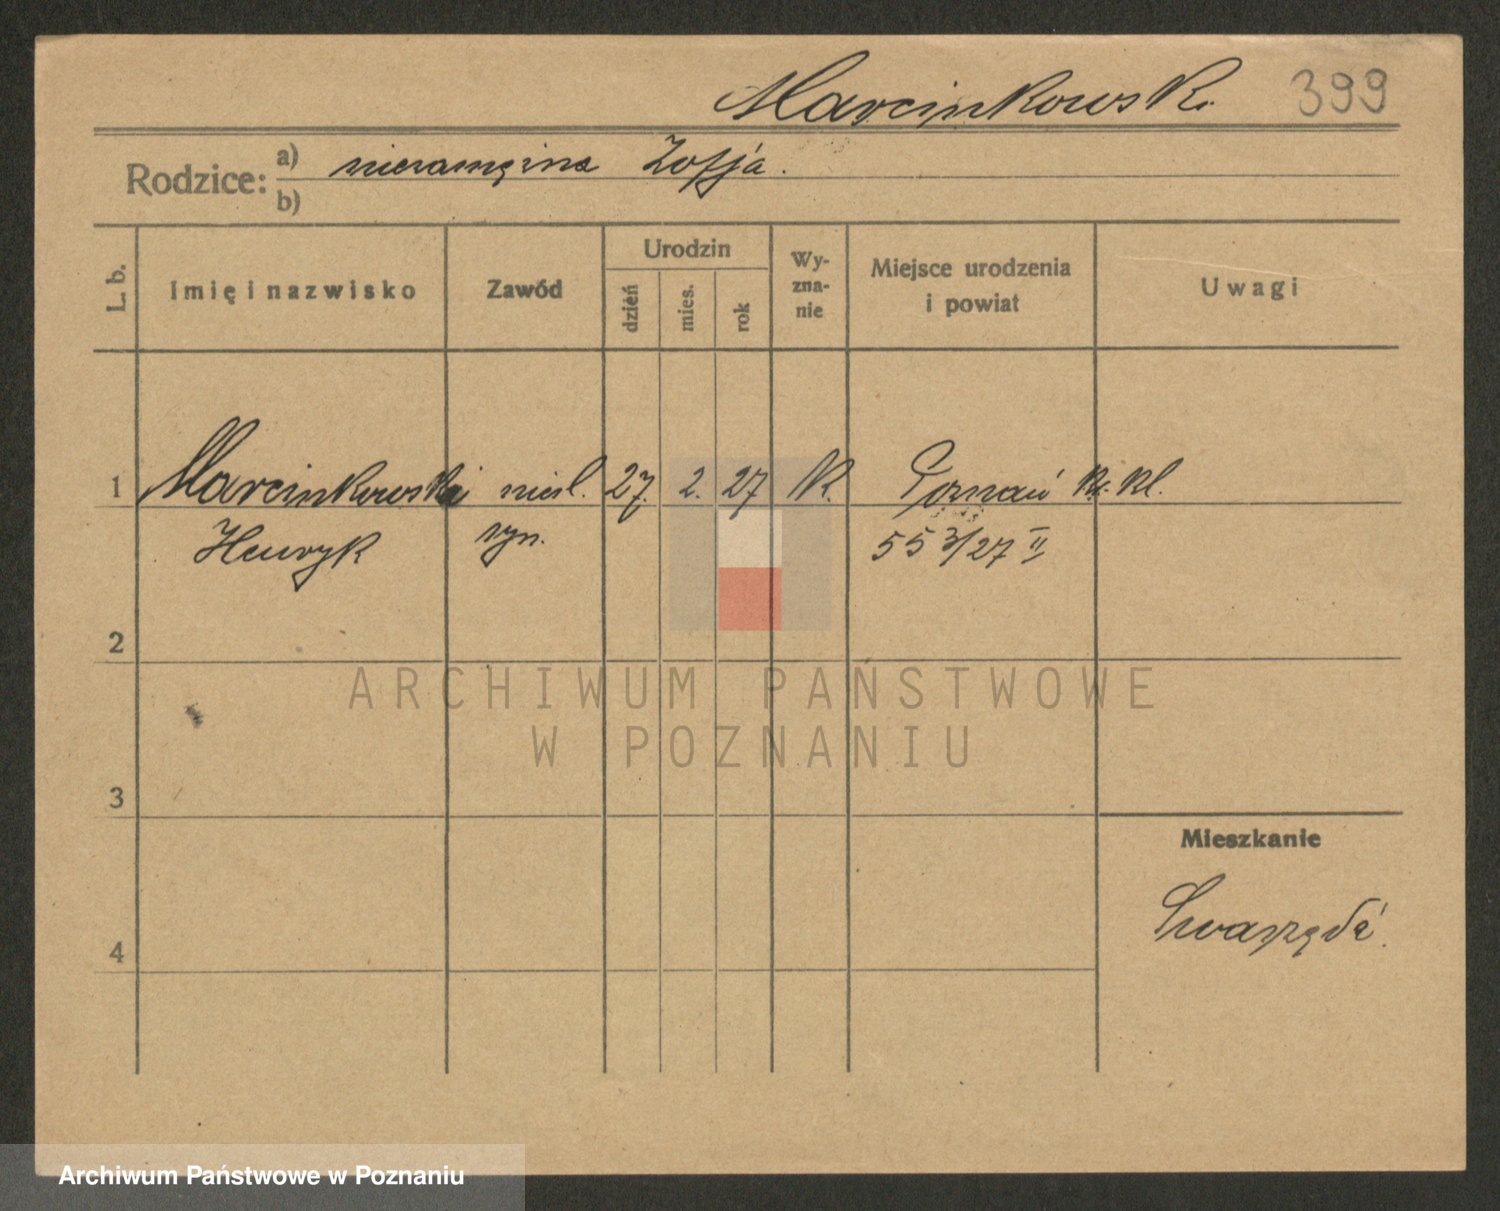 Marcinkowski. 399
Rodzice: a) niezamężna Zofja.
b)
L. b.
Imię i nazwisko
Zawód
Urodzin
dzień
mies.
rok
Wy-
zna-
nie
Miejsce urodzenia
i powiat
Uwagi
1 Marcinkowski nieśl. 27. 2. 27 K. Poznań
Henryk syn. 553/27 II
2
3
Mieszkanie
Swarzędź.
4
ARCHIWUM PAŃSTWOWE
W POZNANIU
Archiwum Państwowe w Poznaniu